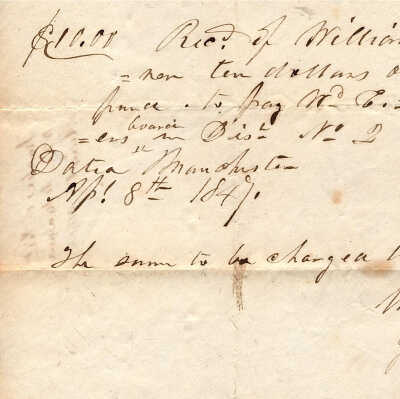 $10.00 Recd. of William
= non ten dollars o
to pay Wd
board
= ers in Dist. No 2
Dated Manchester
Apl. 8th 1847.
The same to be charged